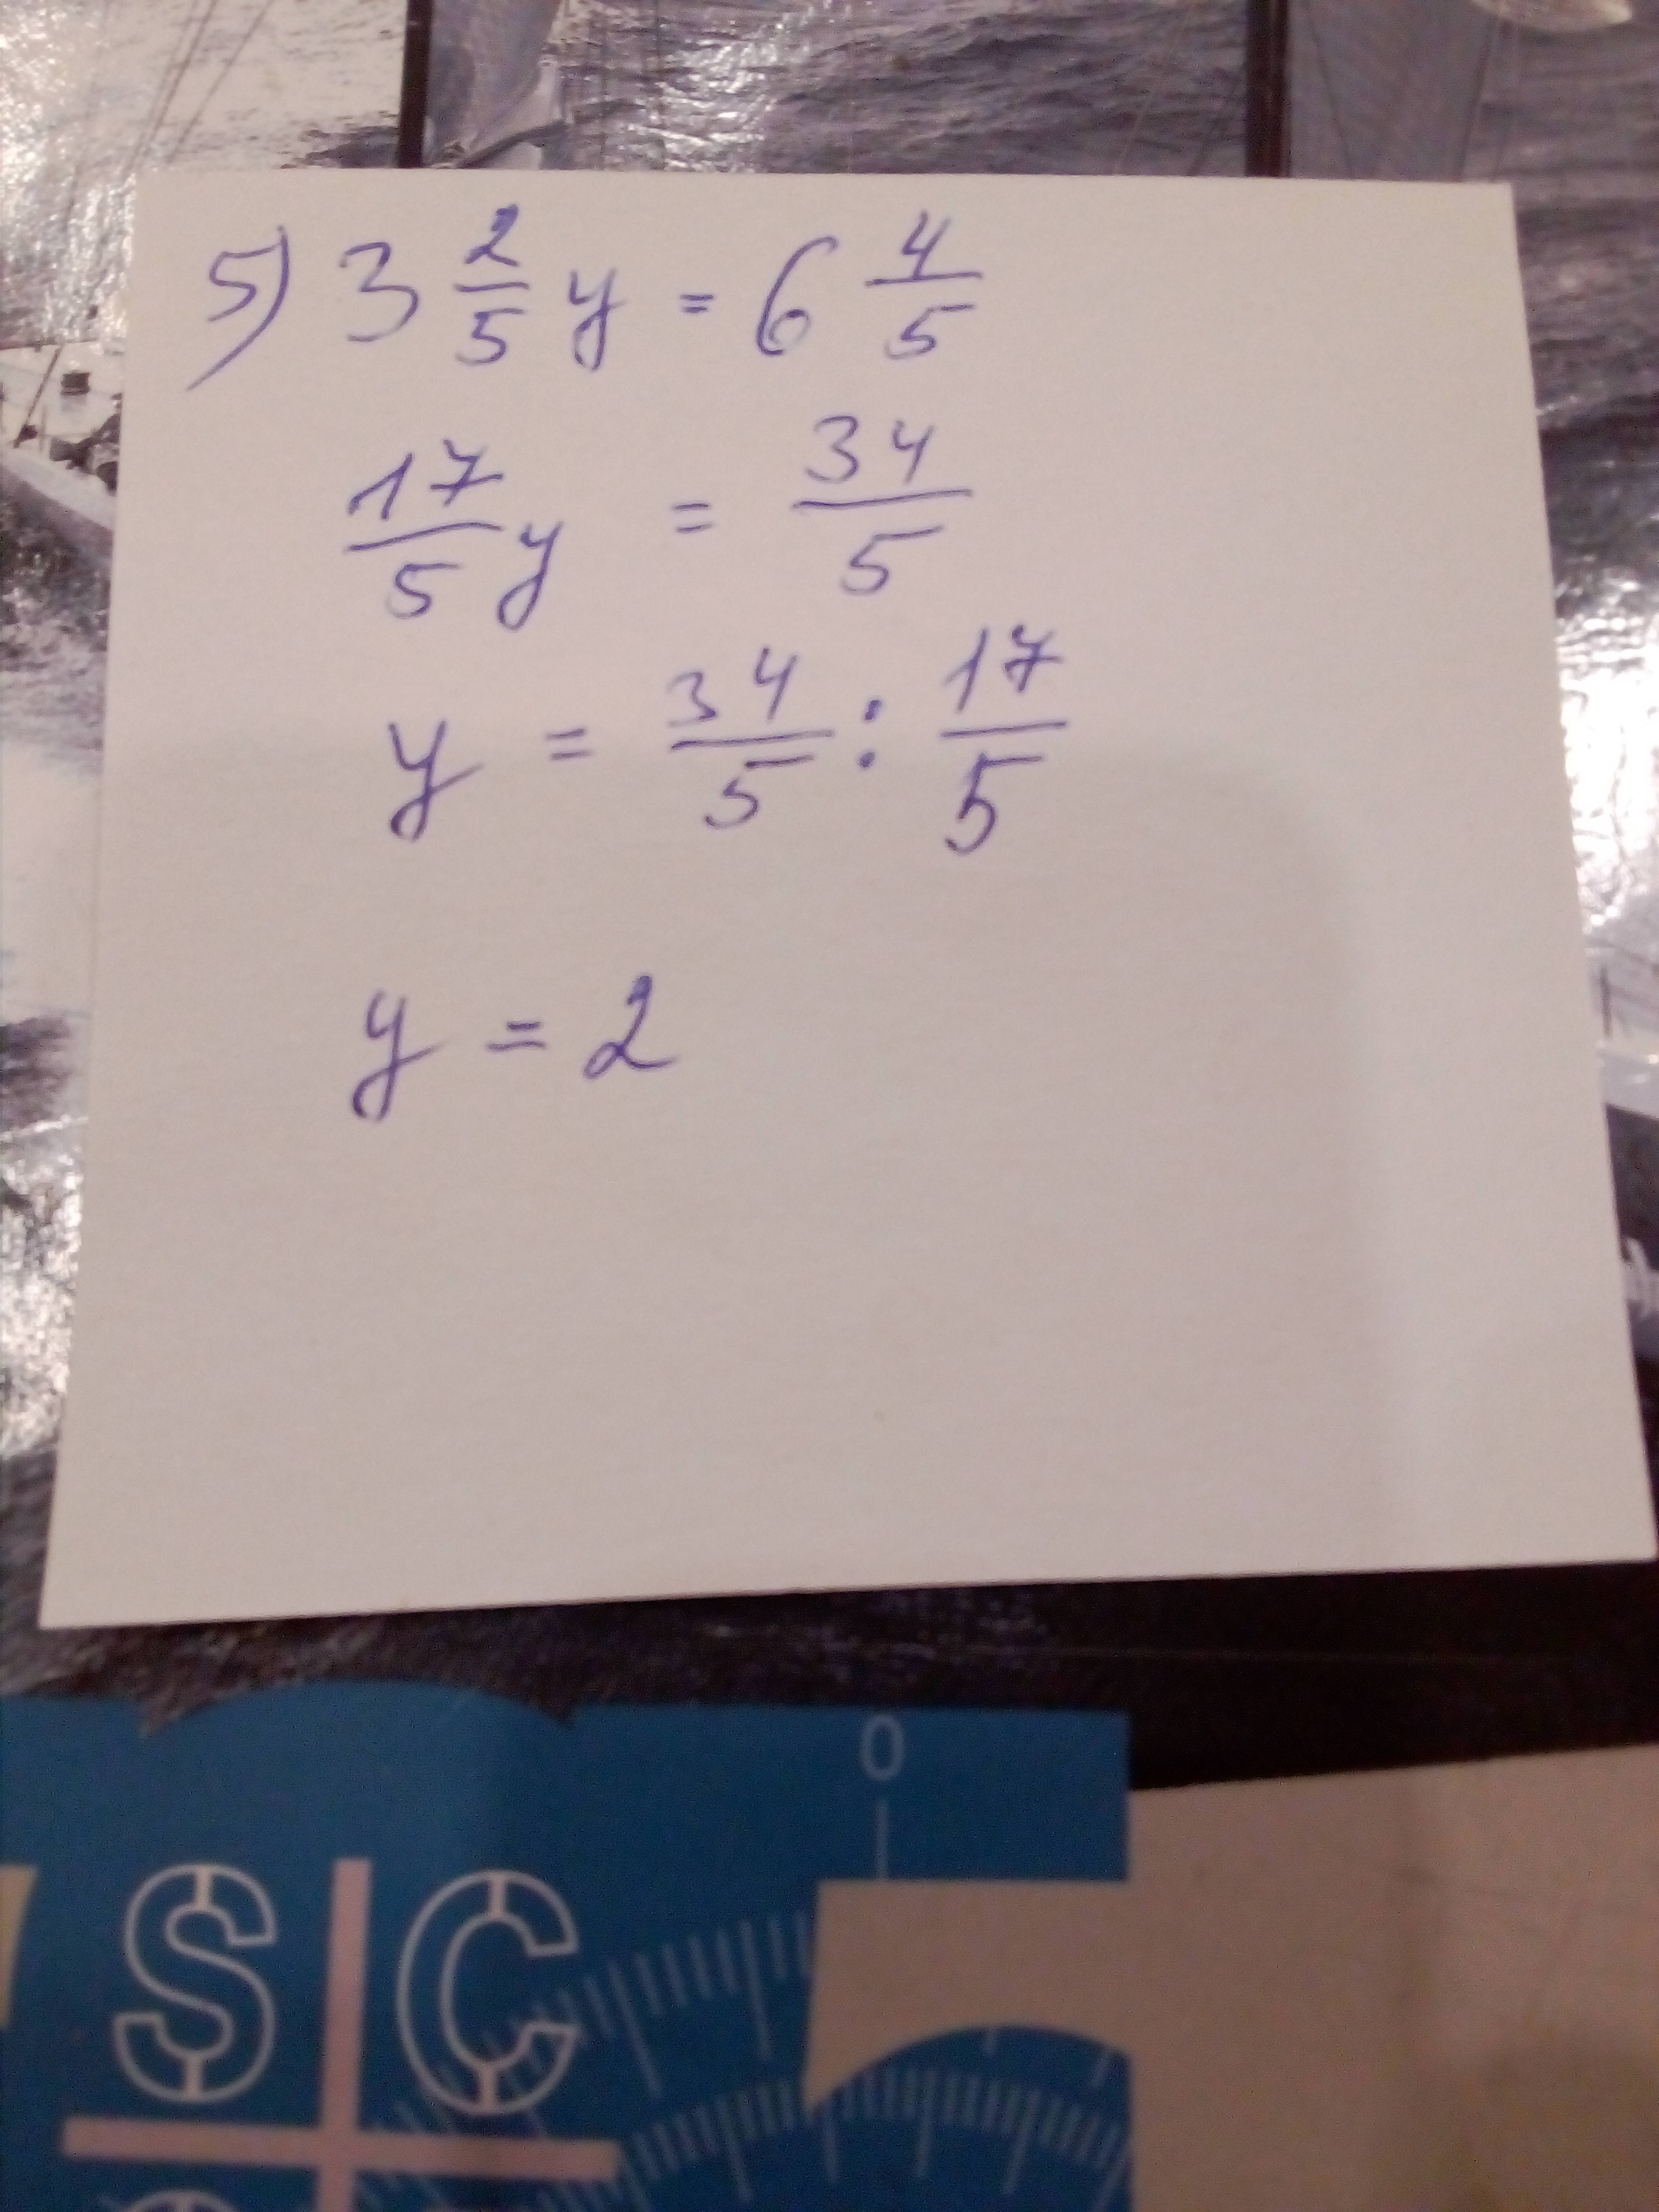 5) 3 2/5 y = 6 4/5
17/5 y = 34/5
y = 34/5 : 17/5
y = 2
0
S C